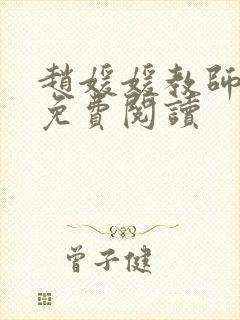 趙媛媛教師
免費閱讀
曾子健